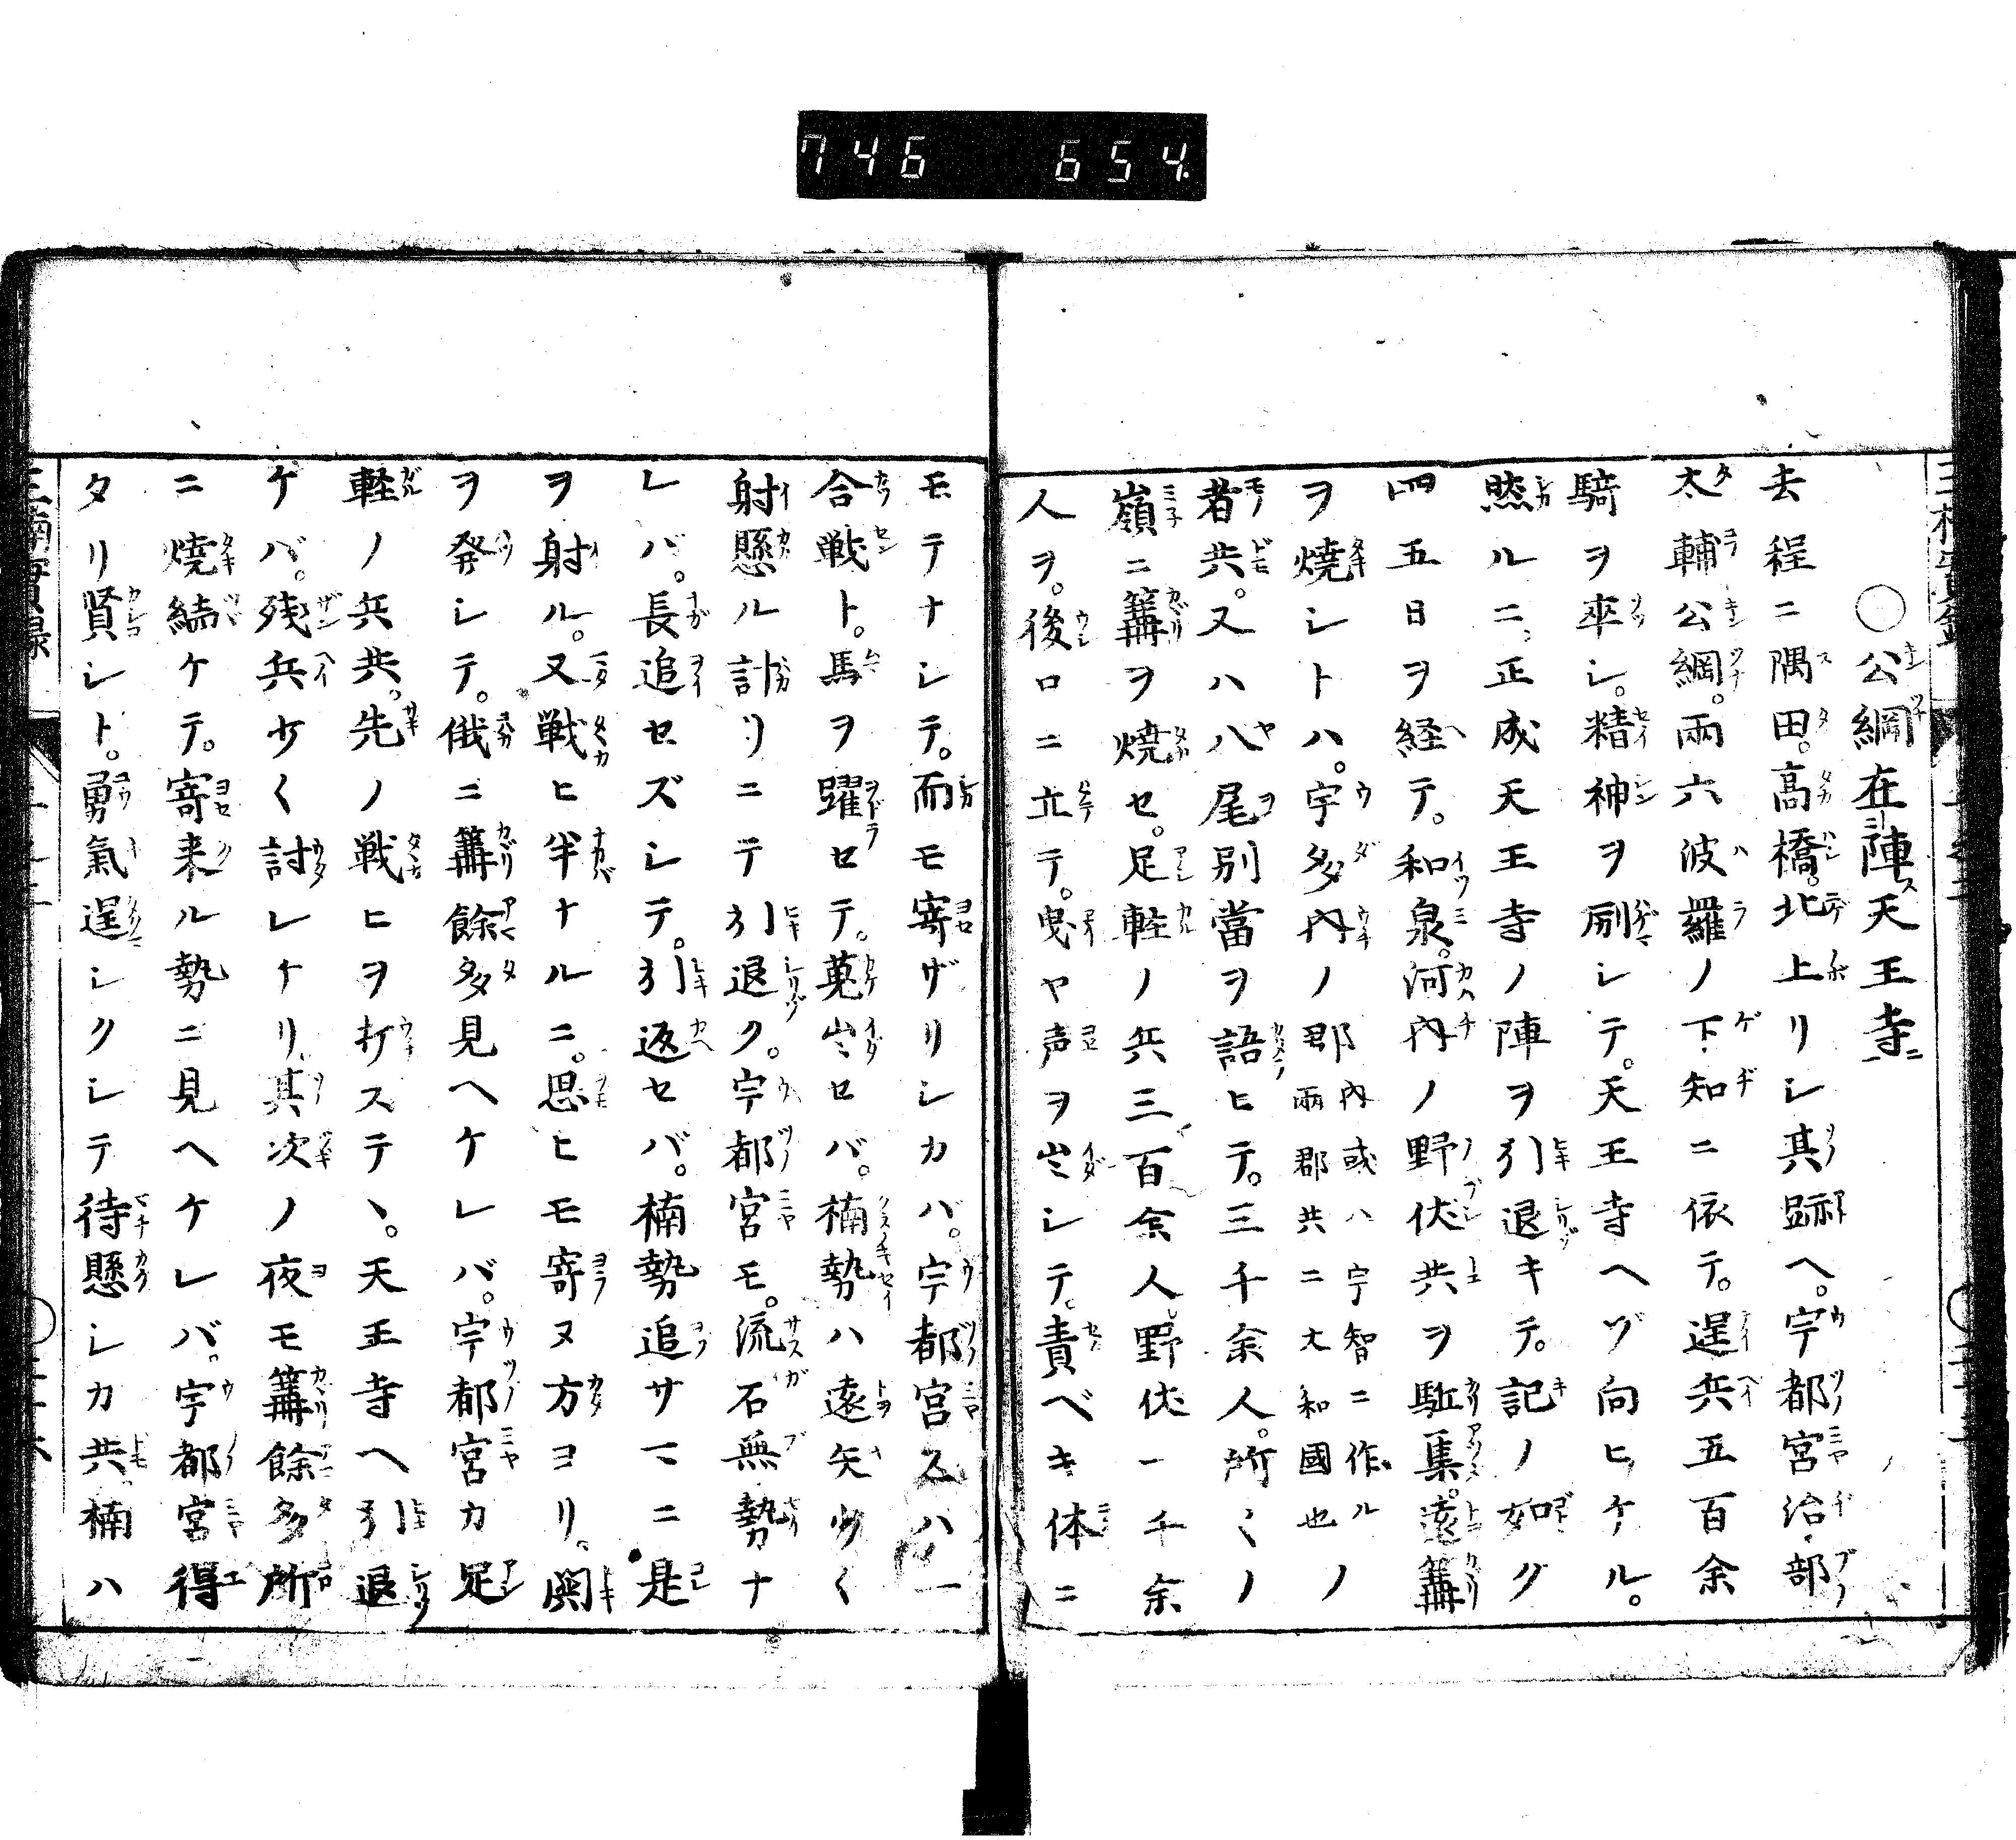 746 654
〇公綱在陣天王寺
去程ニ隅田。高橋。北上リシ其跡ヘ。宇都宮治部
太輔公綱。兩六波羅ノ下知ニ依テ。逞兵五百余
騎ヲ卒シ。精神ヲ励シテ。天王寺ヘヅ向ヒケル。
然ルニ。正成天王寺ノ陣ヲ引退キテ。記ノ如グ
四五日ヲ経テ。和泉。河内ノ野伏共ヲ駈集。遠篝
ヲ燒シトハ。宇多内ノ郡内或ハ宇智ニ作ル兩郡共ニ大和國也ノ
者共。又ハ八尾別當ヲ語ヒテ。三千余人。所〻ノ
嶺ニ篝ヲ燒セ。足軽ノ兵三百余人野伏一千余
人ヲ。後ロニ立テ。曳ヤ声ヲ出シテ。責ベキ体ニ
モテナシテ。而モ寄ザリシカバ。宇都宮スハ一
合戦ト。馬ヲ躍セテ。蒐出セバ。楠勢ハ遠矢少く
射懸ル計リニテ引退ク。宇都宮モ。流石無勢ナ
レバ。長追セズシテ。引返セバ。楠勢追サマニ是
ヲ射ル。又戦ヒ半ナルニ。思ヒモ寄ヌ方ヨリ。鬨
ヲ発シテ。俄ニ篝餘多見ヘケレバ。宇都宮カ足
軽ノ兵共。先ノ戦ヒヲ打ステヽ。天王寺ヘ引退
ゲバ。残兵少く討レケリ。其次ノ夜モ篝餘多所
ニ燒続ケテ。寄来ル勢ニ見ヘケレバ。宇都宮得
タリ賢シト。勇氣逞シクシテ待懸シカ共。楠ハ